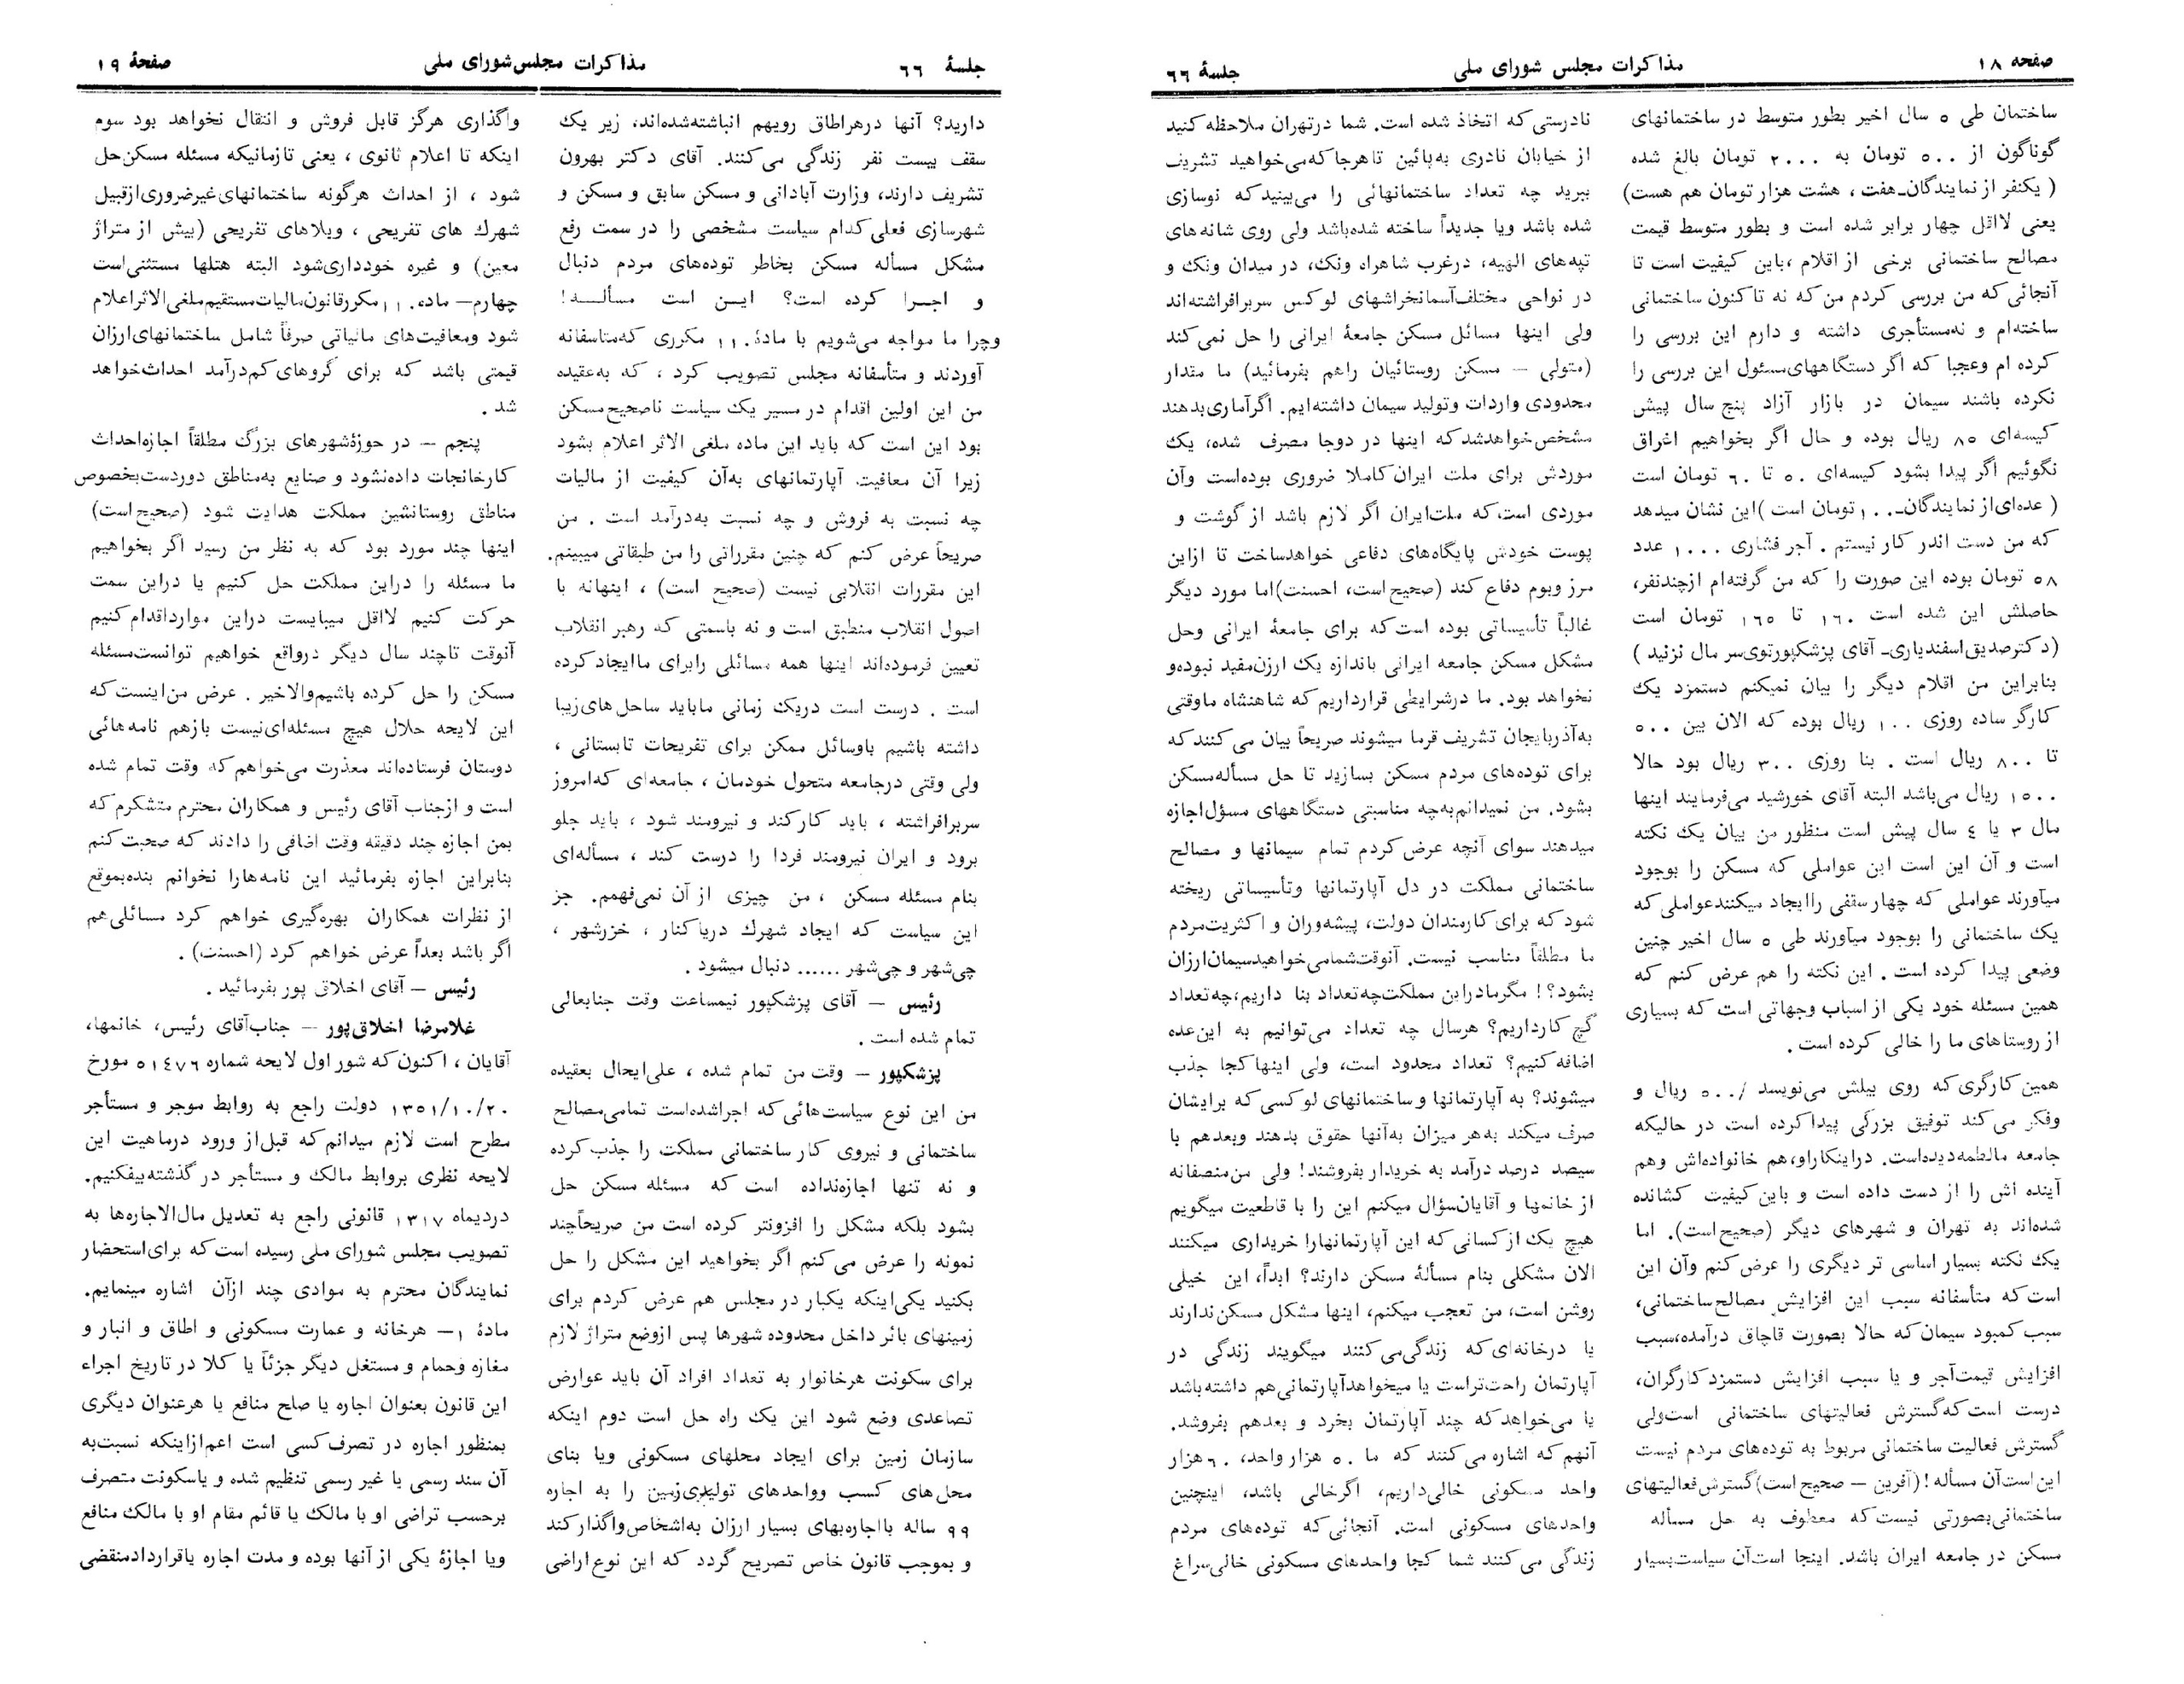 صفحه ۱۸
مذاکرات مجلس شورای ملی
جلسهٔ ۶۶
ساختمان طی ۵ سال اخیر بطور متوسط در ساختمانهای
گوناگون از ۵۰۰ تومان به ۲۰۰۰ تومان بالغ شده
( یکنفر از نمایندگان ـ هفت ، هشت هزار تومان هم هست)
یعنی لااقل چهار برابر شده است و بطور متوسط قیمت
مصالح ساختمانی برخی از اقلام ، باین کیفیت است تا
آنجائی که من بررسی کردم من که نه تاکنون ساختمانی
ساخته‌ام و نه‌مستأجری داشته و دارم این بررسی را
کرده ام وعجبا که اگر دستگاههای‌مسئول این بررسی را
نکرده باشند سیمان در بازار آزاد پنج سال پیش
کیسه‌ای ۸۵ ریال بوده و حال اگر بخواهیم اغراق
نگوئیم اگر پیدا بشود کیسه‌ای ۵۰ تا ۶۰ تومان است
( عده‌ای‌از نمایندگان ـ ۱۰۰ تومان است ) این نشان میدهد
که من دست اندر کار نیستم . آجر فشاری ۱۰۰۰ عدد
۵۸ تومان بوده این صورت را که من گرفته‌ام ازچندنفر،
حاصلش این شده است ۱۶۰ تا ۱۶۵ تومان است
(دکترصدیق‌اسفندیاری ـ آقای پزشکپورتوی‌سر مال نزنید )
بنابراین من اقلام دیگر را بیان نمیکنم دستمزد یک
کارگر ساده روزی ۱۰۰ ریال بوده که الان بین ۵۰۰
تا ۸۰۰ ریال است . بنا روزی ۳۰۰ ریال بود حالا
۱۵۰۰ ریال می‌باشد البته آقای خورشید می‌فرمایند اینها
مال ۳ یا ۴ سال پیش است منظور من بیان یک نکته
است و آن این است این عواملی که مسکن را بوجود
میآورند عواملی که چهار سقفی راایجاد میکنندعواملی که
یک ساختمانی را بوجود میآورند طی ۵ سال اخیر چنین
وضعی پیدا کرده است . این نکته را هم عرض کنم که
همین مسئله خود یکی از اسباب وجهاتی است که بسیاری
از روستاهای ما را خالی کرده است .
همین کارگری که روی بیلش می‌نویسد /۵۰۰ ریال و
وفکر می‌کند توفیق بزرگی پیدا کرده است در حالیکه
جامعه مالطمه‌دیده‌است. دراینکاراو،هم خانواده‌اش وهم
آینده اش را از دست داده است و باین کیفیت کشانده
شده‌اند به تهران و شهرهای دیگر (صحیح‌است). اما
یک نکته بسیار اساسی تر دیگری را عرض کنم وآن این
است که متأسفانه سبب این افزایش مصالح ساختمانی،
سبب کمبود سیمان که حالا بصورت قاچاق درآمده،سبب
افزایش قیمت‌آجر و یا سبب افزایش دستمزد کارگران،
درست است که گسترش فعالیتهای ساختمانی است‌ولی
گسترش فعالیت ساختمانی مربوط به توده‌های مردم نیست
این است‌آن مسأله ! (آفرین – صحیح است) گسترش فعالیتهای
ساختمانی‌بصورتی نیست که معطوف به حل مسأله
مسکن در جامعه ایران باشد. اینجا است‌آن سیاست‌بسیار
نادرستی که اتخاذ شده است. شما درتهران ملاحظه کنید
از خیابان نادری به‌پائین تاهرجا که‌می‌خواهید تشریف
ببرید چه تعداد ساختمانهائی را می‌بینید که نوسازی
شده باشد ویا جدیداً ساخته شده‌باشد ولی روی شانه‌های
تپه‌های الهیه، درغرب شاهراه ونک، در میدان ونک و
در نواحی مختلف‌آسمانخراشهای لوکس سربرافراشته‌اند
ولی اینها مسائل مسکن جامعهٔ ایرانی را حل نمی‌کند
(متولی – مسکن روستائیان راهم بفرمائید) ما مقدار
محدودی واردات وتولید سیمان داشته‌ایم. اگرآماری‌بدهند
مشخص‌خواهدشد که اینها در دوجا مصرف شده، یک
موردش برای ملت ایران‌کاملا ضروری بوده‌است وآن
موردی است‌که ملت‌ایران اگر لازم باشد از گوشت و
پوست خودش پایگاه‌های دفاعی خواهدساخت تا ازاین
مرز وبوم دفاع کند (صحیح‌است، احسنت) اما مورد دیگر
غالباً تأسیساتی بوده است‌که برای جامعهٔ ایرانی وحل
مشکل مسکن جامعه ایرانی باندازه یک ارزن‌مفید نبوده‌و
نخواهد بود. ما درشرایطی قرارداریم که شاهنشاه ماوقتی
به‌آذربایجان تشریف فرما میشوند صریحاً بیان می‌کنند که
برای توده‌های مردم مسکن بسازید تا حل مسأله‌مسکن
بشود. من نمیدانم‌به‌چه مناسبتی دستگاههای مسؤل‌اجازه
میدهند سوای آنچه عرض کردم تمام سیمانها و مصالح
ساختمانی مملکت در دل آپارتمانها وتأسیساتی ریخته
شود که برای کارمندان دولت، پیشه‌وران و اکثریت‌مردم
ما مطلقاً مناسب نیست. آنوقت‌شمامی‌خواهیدسیمان‌ارزان
بشود؟! مگرمادراین مملکت‌چه‌تعداد بنا داریم،چه‌تعداد
گچ کارداریم؟ هرسال چه تعداد می‌توانیم به این‌عده
اضافه کنیم؟ تعداد محدود است، ولی اینها کجا جذب
میشوند؟ به آپارتمانها و ساختمانهای لوکسی که برایشان
صرف میکند به‌هر میزان به‌آنها حقوق بدهند وبعدهم با
سیصد درصد درآمد به خریدار بفروشند! ولی من‌منصفانه
از خانمها و آقایان‌سؤال میکنم این را با قاطعیت میگویم
هیچ یک از کسانی که این آپارتمانهارا خریداری میکنند
الان مشکلی بنام مسألهٔ مسکن دارند؟ ابداً، این خیلی
روشن است، من تعجب میکنم، اینها مشکل مسکن‌ندارند
یا درخانه‌ای که زندگی‌می‌کنند میگویند زندگی در
آپارتمان راحت‌تراست یا میخواهدآپارتمانی‌هم داشته‌باشد
یا می‌خواهد که چند آپارتمان بخرد و بعدهم بفروشد.
آنهم که اشاره می‌کنند که ما ۵۰ هزار واحد، ۶۰ هزار
واحد مسکونی خالی‌داریم، اگرخالی باشد، اینچنین
واحدهای مسکونی است. آنجائی که توده‌های مردم
زندگی می‌کنند شما کجا واحدهای مسکونی خالی‌سراغ
جلسهٔ ۶۶
مذاکرات مجلس‌شورای ملی
صفحهٔ ۱۹
دارید؟ آنها درهراطاق رویهم انباشته‌شده‌اند، زیر یک
سقف بیست نفر زندگی می‌کنند. آقای دکتر بهرون
تشریف دارند، وزارت آبادانی و مسکن سابق و مسکن و
شهرسازی فعلی کدام سیاست مشخصی را در سمت رفع
مشکل مسأله مسکن بخاطر توده‌های مردم دنبال
و اجرا کرده است؟ این است مسأله!
وچرا ما مواجه می‌شویم با مادهٔ ۱۱۰ مکرری که‌متاسفانه
آوردند و متأسفانه مجلس تصویب کرد ، که به‌عقیده
من این اولین اقدام در مسیر یک سیاست ناصحیح مسکن
بود این است که باید این ماده ملغی الاثر اعلام بشود
زیرا آن معافیت آپارتمانهای به‌آن کیفیت از مالیات
چه نسبت به فروش و چه نسبت به‌درآمد است . من
صریحاً عرض کنم که چنین مقرراتی را من طبقاتی میبینم.
این مقررات انقلابی نیست (صحیح است) ، اینهانه با
اصول انقلاب منطبق است و نه باسمتی که رهبر انقلاب
تعیین فرموده‌اند اینها همه مسائلی رابرای ماایجاد کرده
است . درست است دریک زمانی ماباید ساحل‌های‌زیبا
داشته باشیم باوسائل ممکن برای تفریحات تابستانی ،
ولی وقتی درجامعه متحول خودمان ، جامعه‌ای که‌امروز
سربرافراشته ، باید کارکند و نیرومند شود ، باید جلو
برود و ایران نیرومند فردا را درست کند ، مسأله‌ای
بنام مسئله مسکن ، من چیزی از آن نمی‌فهمم. جز
این سیاست که ایجاد شهرک دریاکنار ، خزرشهر ،
چی‌شهر و چی‌شهر ...... دنبال میشود .
رئیس – آقای پزشکپور نیمساعت وقت جنابعالی
تمام شده است .
پزشکپور – وقت من تمام شده ، علی‌ایحال بعقیده
من این نوع سیاست‌هائی که اجراشده‌است تمامی‌مصالح
ساختمانی و نیروی کار ساختمانی مملکت را جذب کرده
و نه تنها اجازه‌نداده است که مسئله مسکن حل
بشود بلکه مشکل را افزونتر کرده است من صریحاًچند
نمونه را عرض می‌کنم اگر بخواهید این مشکل را حل
بکنید یکی‌اینکه یکبار در مجلس هم عرض کردم برای
زمینهای بائر داخل محدوده شهرها پس ازوضع متراژ لازم
برای سکونت هرخانوار به تعداد افراد آن باید عوارض
تصاعدی وضع شود این یک راه حل است دوم اینکه
سازمان زمین برای ایجاد محلهای مسکونی ویا بنای
محل‌های کسب وواحدهای تولیدی‌زمین را به اجاره
۹۹ ساله بااجاره‌بهای بسیار ارزان به‌اشخاص‌واگذارکند
و بموجب قانون خاص تصریح گردد که این نوع‌اراضی
واگذاری هرگز قابل فروش و انتقال نخواهد بود سوم
اینکه تا اعلام ثانوی ، یعنی تازمانیکه مسئله مسکن‌حل
شود ، از احداث هرگونه ساختمانهای‌غیرضروری‌ازقبیل
شهرک های تفریحی ، ویلاهای تفریحی (بیش از متراژ
معین) و غیره خودداری‌شود البته هتلها مستثنی‌است
چهارم – ماده ۱۱۰ مکررقانون‌مالیات‌مستقیم‌ملغی‌الاثراعلام
شود ومعافیت‌های مالیاتی صرفاً شامل ساختمانهای‌ارزان
قیمتی باشد که برای گروهای کم‌درآمد احداث‌خواهد
شد .
پنجم – در حوزهٔ‌شهرهای بزرگ مطلقاً اجازه‌احداث
کارخانجات داده‌نشود و صنایع به‌مناطق دوردست‌بخصوص
مناطق روستانشین مملکت هدایت شود (صحیح‌است)
اینها چند مورد بود که به نظر من رسید اگر بخواهیم
ما مسئله را دراین مملکت حل کنیم یا دراین سمت
حرکت کنیم لااقل میبایست دراین مواردا‌قدام کنیم
آنوقت تاچند سال دیگر درواقع خواهیم توانست‌مسئله
مسکن را حل کرده باشیم‌والاخیر . عرض من‌اینست که
این لایحه حلال هیچ مسئله‌ای‌نیست بازهم نامه‌هائی
دوستان فرستاده‌اند معذرت می‌خواهم که وقت تمام شده
است و ازجناب آقای رئیس و همکاران محترم متشکرم که
بمن اجازه چند دقیقه وقت اضافی را دادند که صحبت کنم
بنابراین اجازه بفرمائید این نامه‌هارا نخوانم بنده‌بموقع
از نظرات همکاران بهره‌گیری خواهم کرد مسائلی‌هم
اگر باشد بعداً عرض خواهم کرد (احسنت) .
رئیس – آقای اخلاق پور بفرمائید .
غلامرضا اخلاق‌پور – جناب‌آقای رئیس، خانمها،
آقایان ، اکنون که شور اول لایحه شماره ۵۱۴۷۶ مورخ
۱۳۵۱/۱۰/۲۰ دولت راجع به روابط موجر و مستأجر
مطرح است لازم میدانم که قبل‌از ورود درماهیت این
لایحه نظری بروابط مالک و مستأجر در گذشته‌بیفکنیم.
دردیماه ۱۳۱۷ قانونی راجع به تعدیل مال‌الاجاره‌ها به
تصویب مجلس شورای ملی رسیده است که برای‌استحضار
نمایندگان محترم به موادی چند ازآن اشاره مینمایم.
مادهٔ ۱– هرخانه و عمارت مسکونی و اطاق و انبار و
مغازه وحمام و مستغل دیگر جزئاً یا کلا در تاریخ اجراء
این قانون بعنوان اجاره یا صلح منافع یا هرعنوان دیگری
بمنظور اجاره در تصرف کسی است اعم‌ازاینکه نسبت‌به
آن سند رسمی یا غیر رسمی تنظیم شده و یاسکونت متصرف
برحسب تراضی او با مالک یا قائم مقام او با مالک منافع
ویا اجازهٔ یکی از آنها بوده و مدت اجاره یاقراردادمنقضی